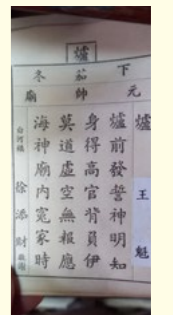 爐
下茄苳
元帥廟
爐 王魁
爐前發誓神明知
身得高官背員伊
莫道虛空無報應
海神廟內寃家時
白河鎮 徐添財